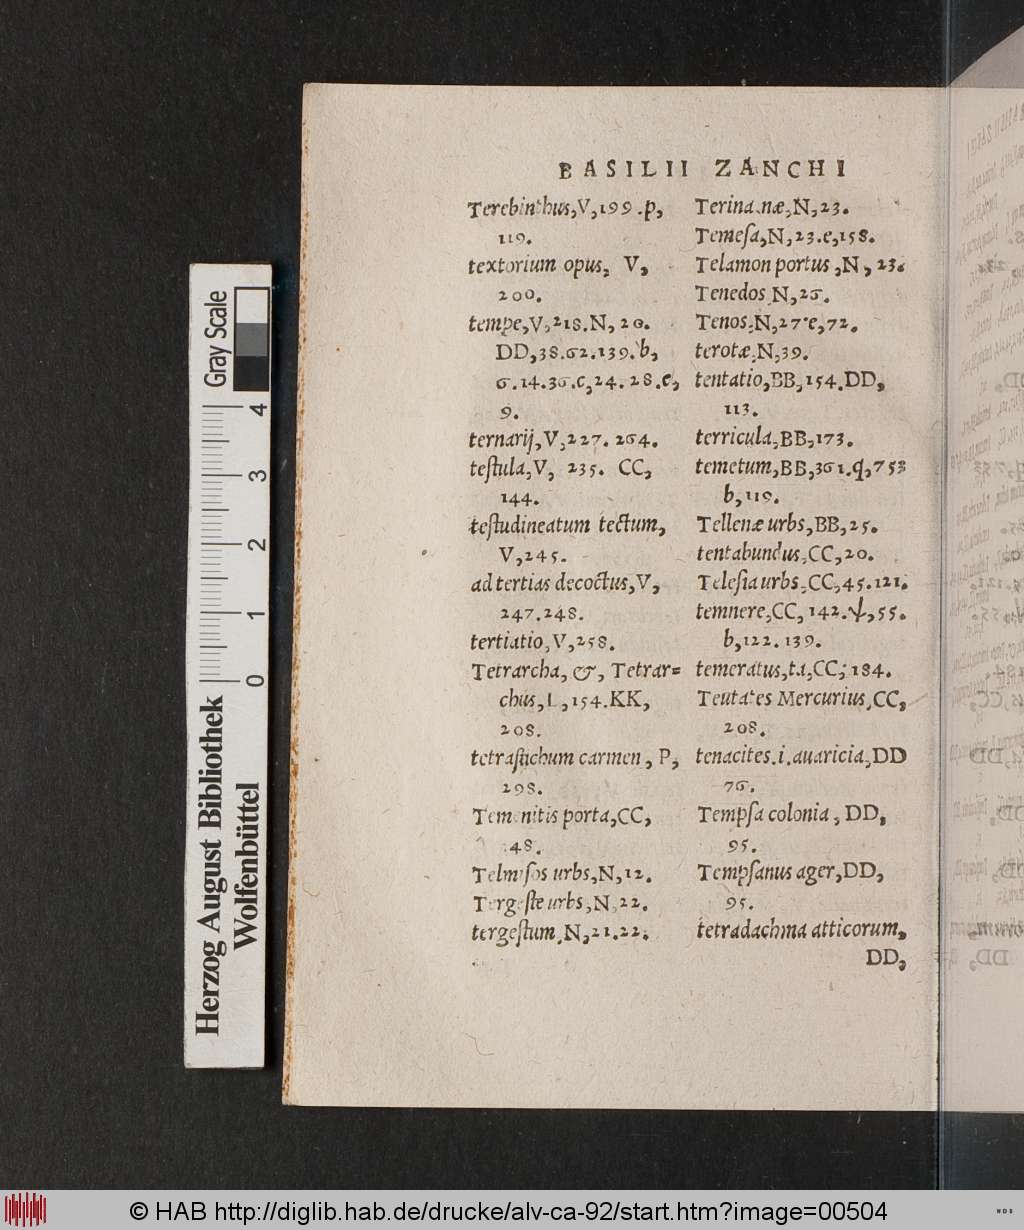 BASILII ZANCHI
Terebinthus,V,199.p,
119.
textorium opus, V,
200.
tempe,V,218.N,20.
DD,38.62.139.b,
6.14.36.c,24.28.e,
9.
ternarij,V,227.264.
teſtula,V, 235. CC,
144.
teſtudineatum tectum,
V,245.
ad tertias decoctus,V,
247.248.
tertiatio,V,258.
Tetrarcha, &, Tetrar=
chus,L,154.KK,
208.
tetraſtichum carmen, P,
298.
Temenitis porta,CC,
48.
Telmiſos urbs,N,12.
Tergeſte urbs,N,22.
tergeſtum,N,21.22.
Terina.næ,N,23.
Temeſa,N,23.e,158.
Telamon portus,N,23.
Tenedos N,26.
Tenos,N,27.e,72.
terotæ,N,39.
tentatio,BB,154.DD,
113.
terricula,BB,173.
temetum,BB,361.q,753
b,119.
Tellenæ urbs,BB,25.
tentabundus,CC,20.
Teleſia urbs,CC,45.121.
temnere,CC,142.ψ,55.
b,122.139.
temeratus,ta,CC,184.
Teutates Mercurius,CC,
208.
tenacites.i.auaricia,DD
76.
Tempſa colonia, DD,
95.
Tempſanus ager,DD,
95.
tetradachma atticorum,
DD,
Gray Scale
0 1 2 3 4
Herzog August Bibliothek
Wolfenbüttel
© HAB http://diglib.hab.de/drucke/alv-ca-92/start.htm?image=00504